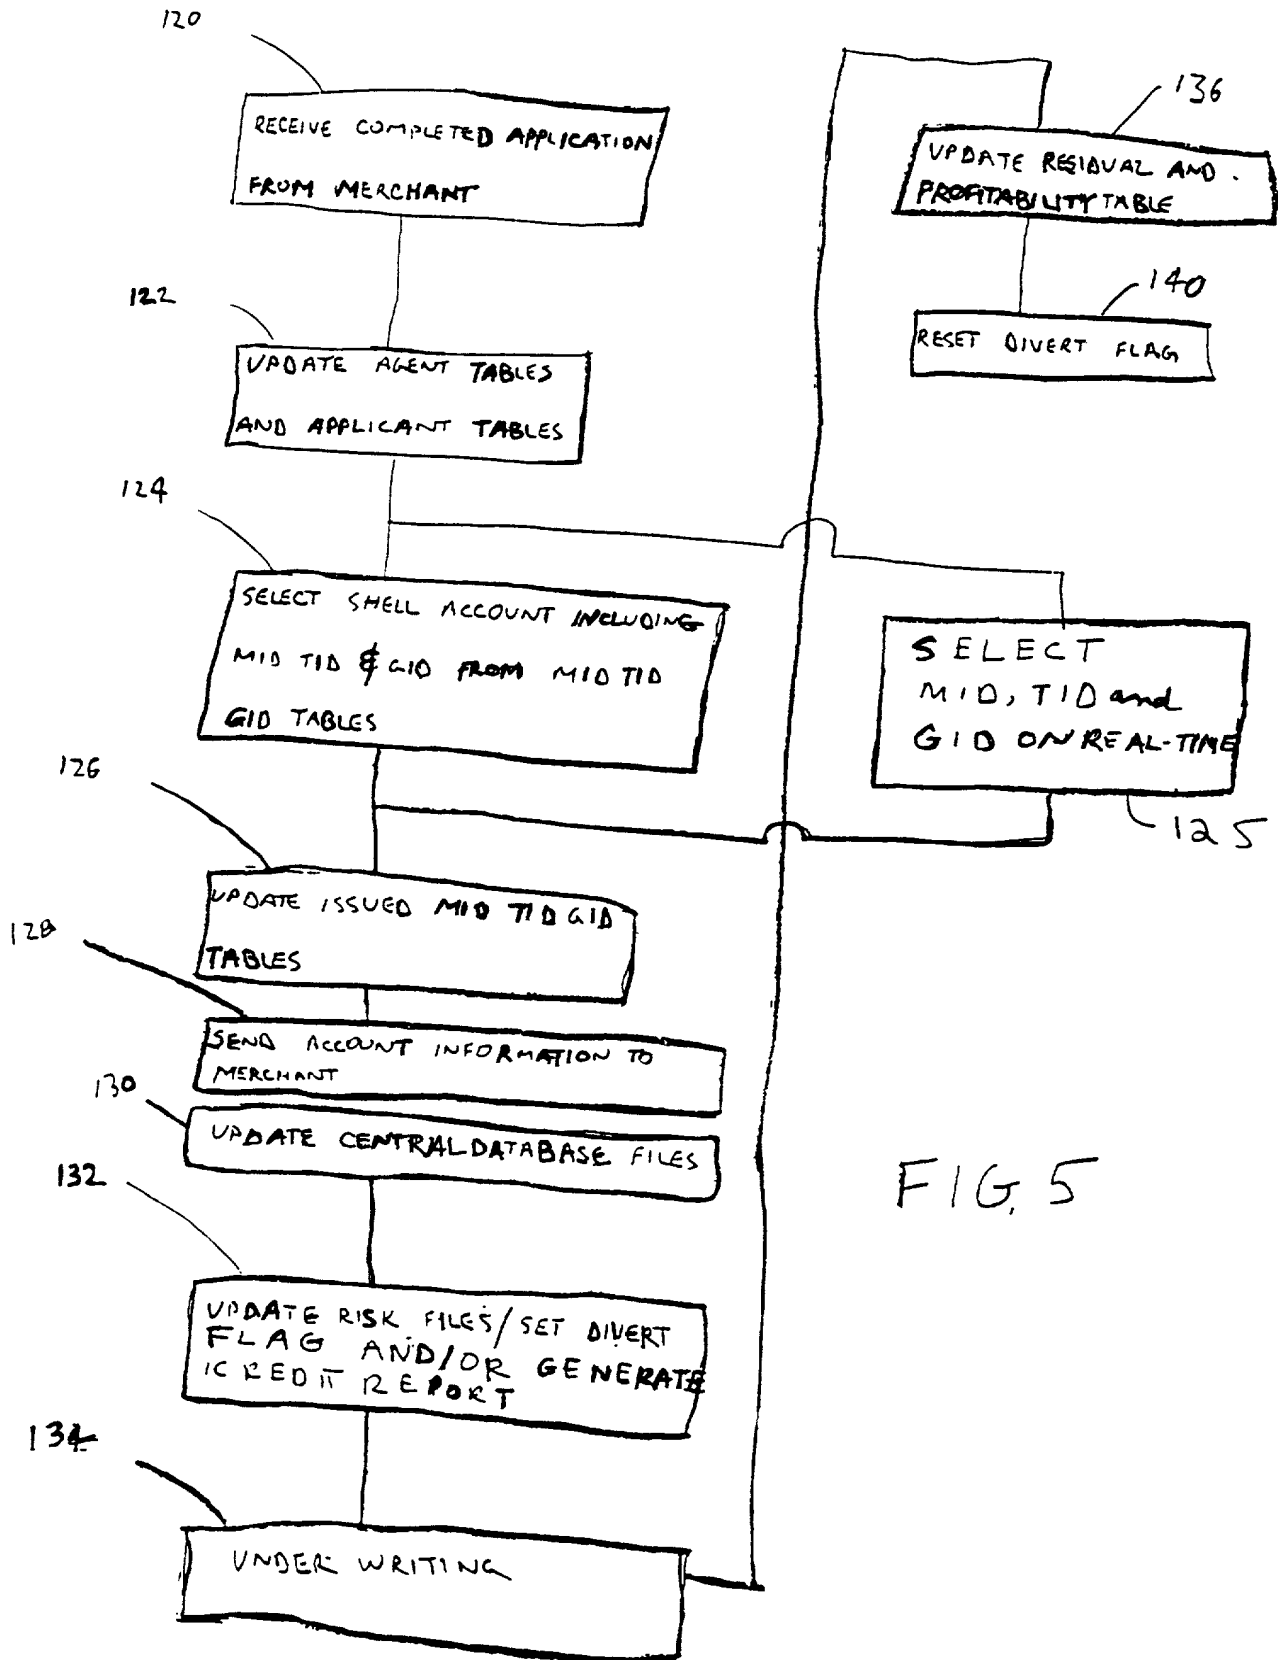 120
RECEIVE COMPLETED APPLICATION
FROM MERCHANT
122
UPDATE AGENT TABLES
AND APPLICANT TABLES
124
SELECT SHELL ACCOUNT INCLUDING
MID TID & GID FROM MID TID
GID TABLES
SELECT
MID, TID and
GID ON REAL-TIME
125
126
UPDATE ISSUED MID TID GID
TABLES
128
SEND ACCOUNT INFORMATION TO
MERCHANT
130
UPDATE CENTRAL DATABASE FILES
132
UPDATE RISK FILES/SET DIVERT
FLAG AND/OR GENERATE
CREDIT REPORT
134
UNDER WRITING
136
UPDATE RESIDUAL AND
PROFITABILITY TABLE
140
RESET DIVERT FLAG
FIG. 5